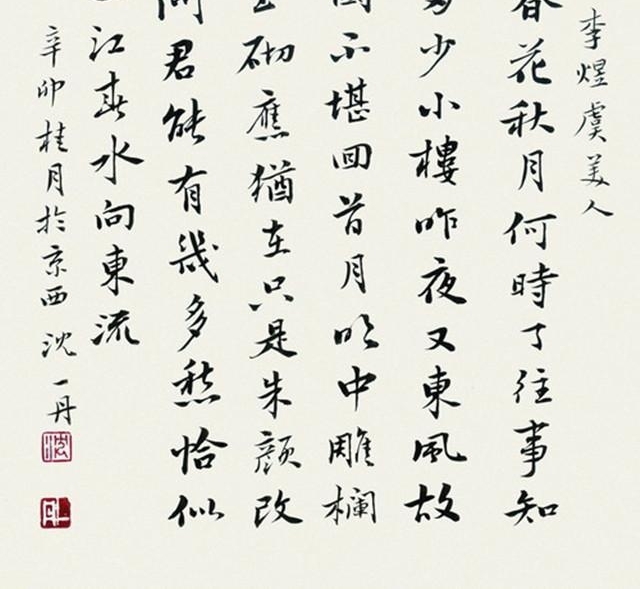 李煜虞美人
春花秋月何時了往事知
多少小樓昨夜又東風故
國不堪回首月明中雕欄
玉砌應猶在只是朱顏改
問君能有幾多愁恰似
江春水向東流
辛卯桂月於京西沈一丹
沈